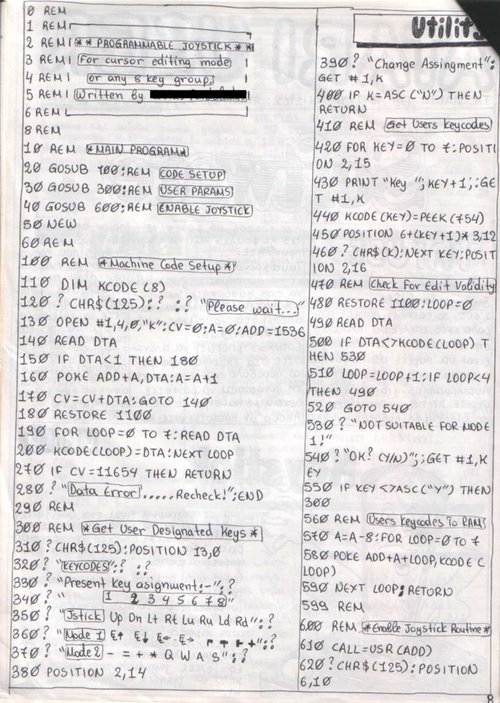 0 REM
1 REM
2 REM ** PROGRAMMABLE JOYSTICK **
3 REM For cursor editing mode
4 REM or any 8 key group,
5 REM Written by
6 REM
8 REM
10 REM *MAIN PROGRAM*
20 GOSUB 100:REM CODE SETUP
30 GOSUB 300:REM USER PARAMS
40 GOSUB 600:REM ENABLE JOYSTICK
50 NEW
60 REM
100 REM *Machine Code Setup*
110 DIM KCODE(8)
120 ? CHR$(125): ? :? "Please wait..."
130 OPEN #1,4,0,"K":CV=0:A=0:ADD=1536
140 READ DTA
150 IF DTA<1 THEN 180
160 POKE ADD+A,DTA:A=A+1
170 CV=CV+DTA:GOTO 140
180 RESTORE 1100
190 FOR LOOP=0 TO 7:READ DTA
200 KCODE(LOOP)=DTA:NEXT LOOP
270 IF CV=11654 THEN RETURN
280 ? "Data Error.....Recheck!";END
290 REM
300 REM *Get User Designated Keys*
310 ?CHR$(125):POSITION 13,0
320 ? "KEYCODES":? :?
330 ? "Present key asignment:-":?
340 ? " 1 2 3 4 5 6 7 8"
350 ? "Jstick Up Dn Lt Rt Lu Ru Ld Rd":?
360 ? "Mode 1 E↑ E↓ E← E→
370 ? "Mode 2 - = + * Q W A S":?
380 POSITION 2,14
Utility
390 ? "Change Assingment":
GET #1,K
400 IF K=ASC("N") THEN
RETURN
410 REM Get Users Keycodes
420 FOR KEY=0 TO 7:POSITI
ON 2,15
430 PRINT "Key ";KEY+1;:GE
T #1,K
440 KCODE(KEY)=PEEK(754)
450 POSITION 6+(KEY+1)*3,12
460 ? CHR$(K):NEXT KEY:POSIT
ION 2,16
470 REM Check For Edit Validity
480 RESTORE 1100:LOOP=0
490 READ DTA
500 IF DTA<>KCODE(LOOP) T
HEN 530
510 LOOP=LOOP+1:IF LOOP<4
THEN 490
520 GOTO 540
530 ? "NOT SUITABLE FOR MODE
1!"
540 ?"OK? (Y/N)";:GET #1,K
EY
550 IF KEY<>ASC("Y") THEN
300
560 REM Users Keycodes To RAM
570 A=A-8:FOR LOOP=0 TO 7
580 POKE ADD+A+LOOP,KCODE(
LOOP)
590 NEXT LOOP:RETURN
599 REM
600 REM *Enable Joystick Routine*
610 CALL=USR(ADD)
620 ?CHR$(125):POSITION
6,10
8